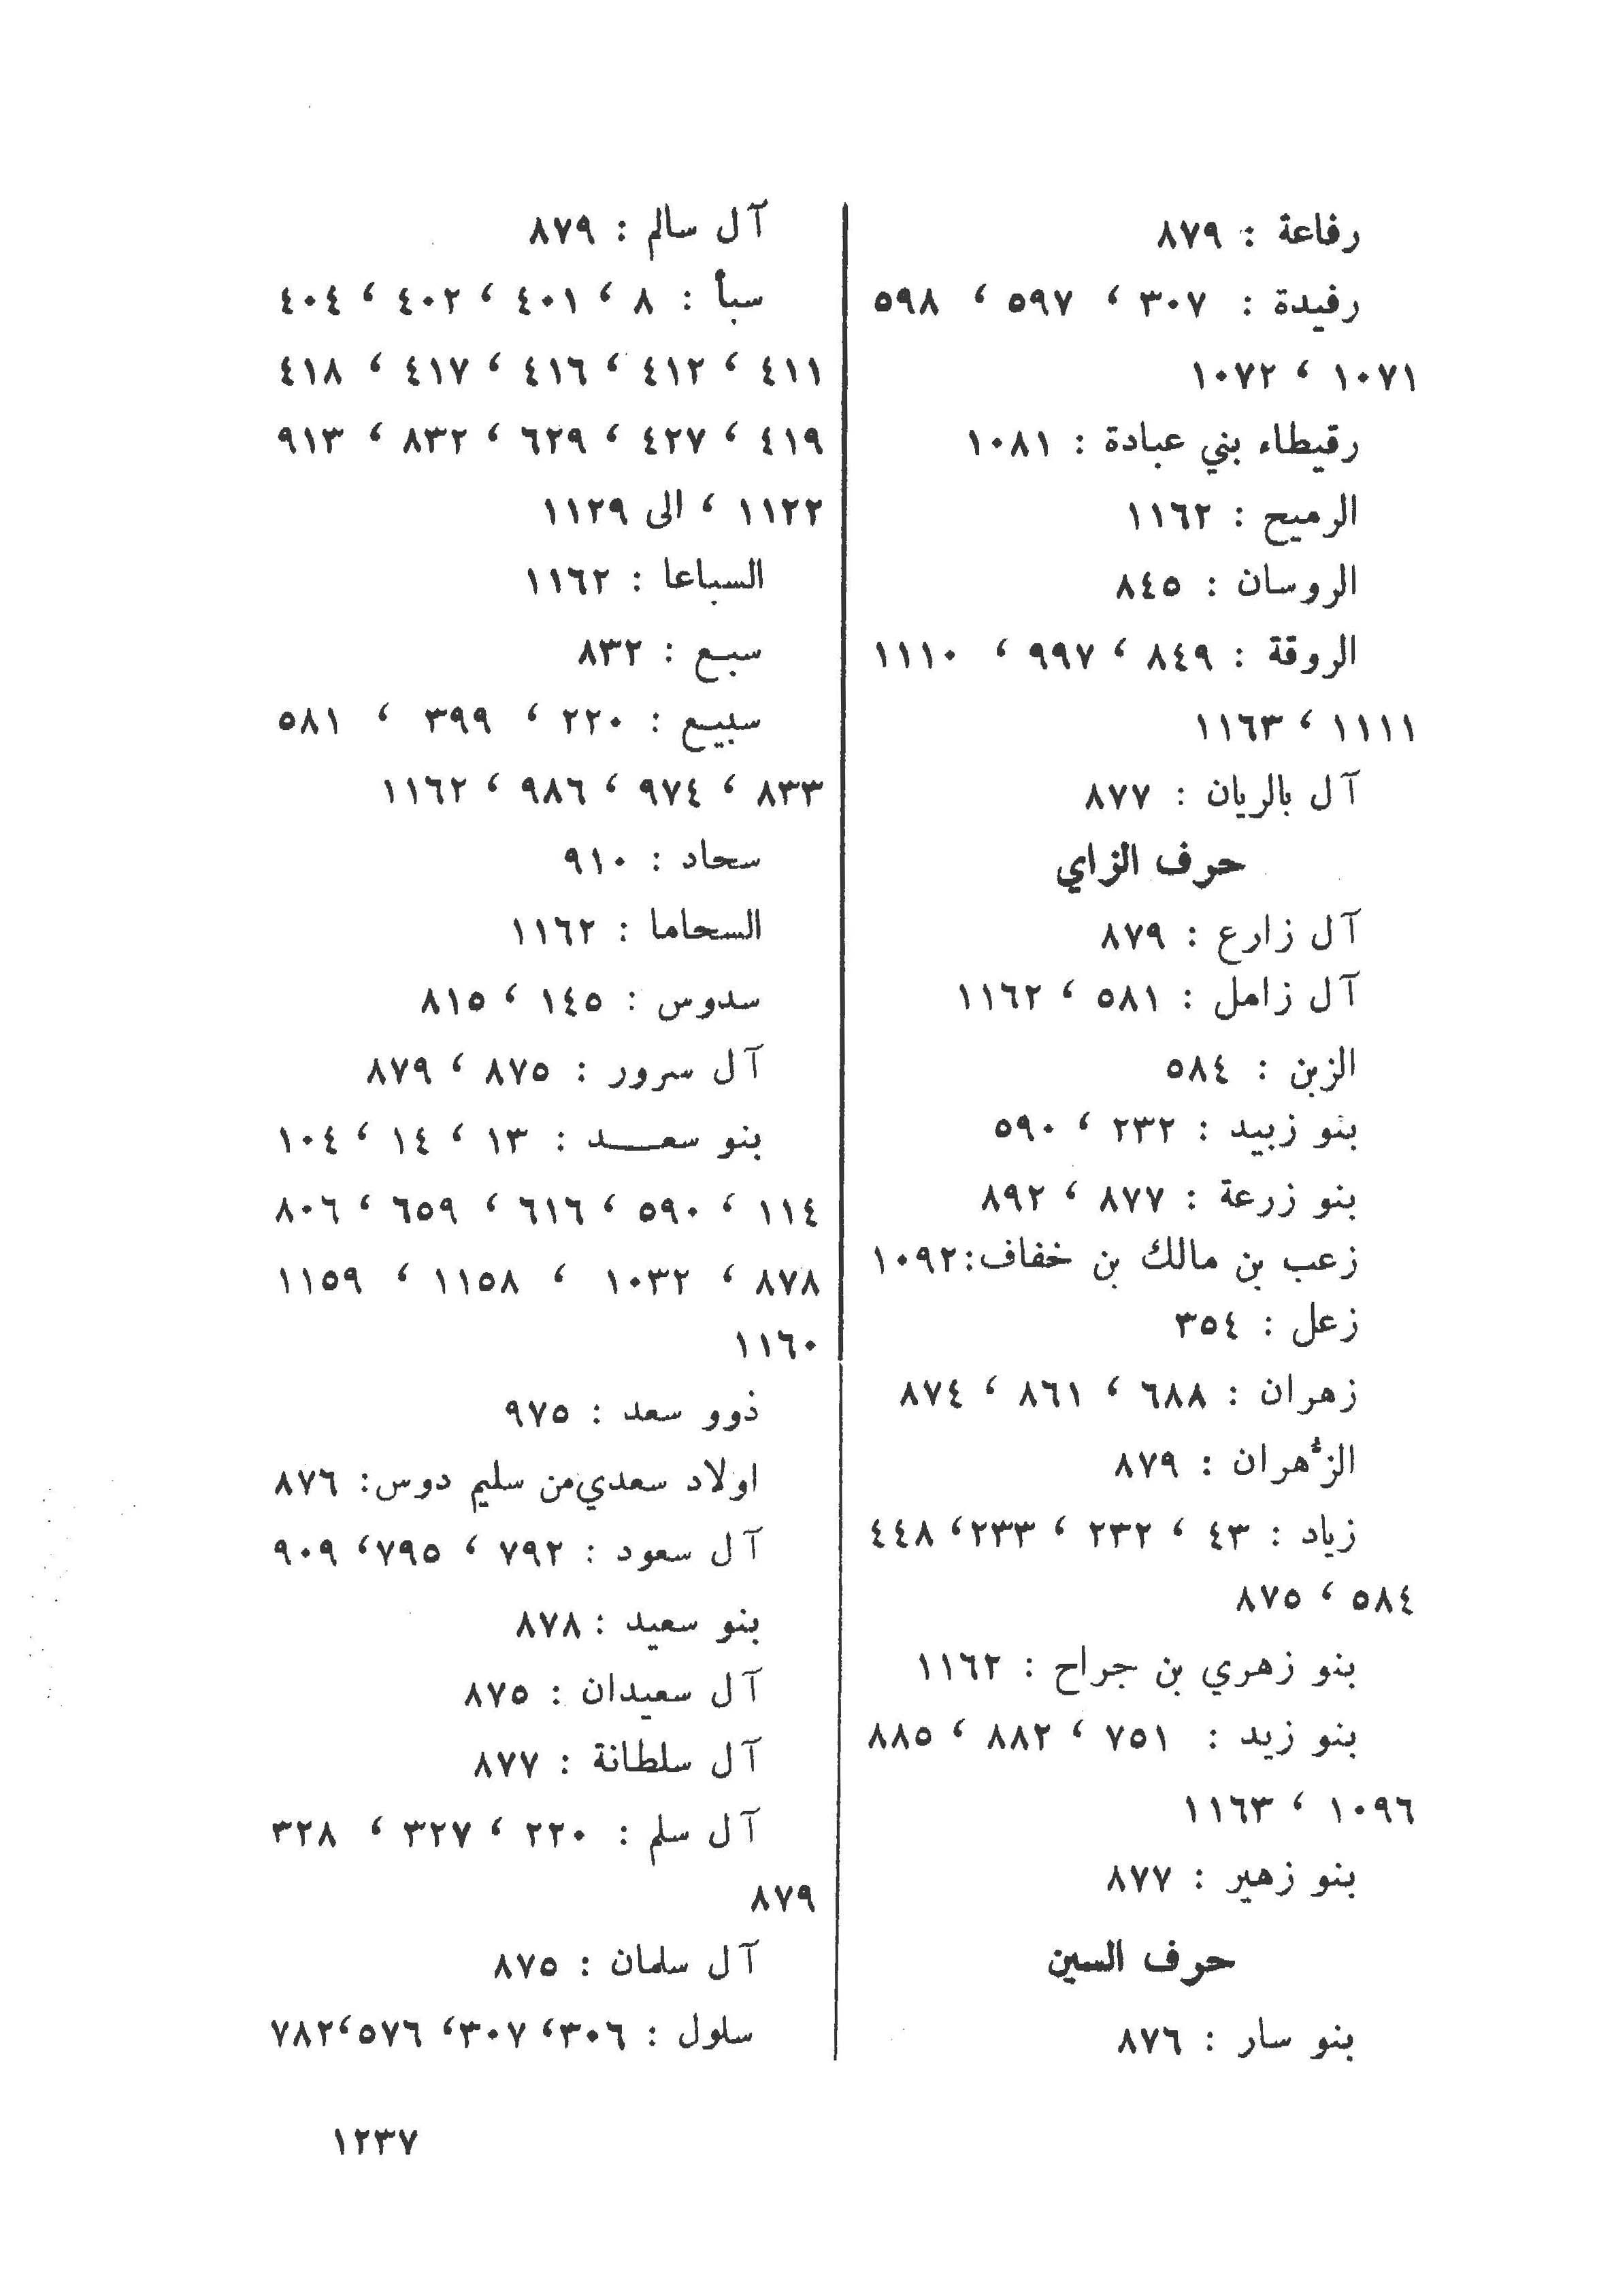 رفاعة : ٨٧٩
رفيدة : ٣٠٧ ، ٥٩٧ ، ٥٩٨
١٠٧١ ، ١٠٧٢
رقيطاء بني عبادة : ١٠٨١
الرميح : ١١٦٢
الروسان : ٨٤٥
الروقة : ٨٤٩ ، ٩٩٧ ، ١١١٠
١١١١ ، ١١٦٣
آل بالريان : ٨٧٧
حرف الزاي
آل زارع : ٨٧٩
آل زامل : ٥٨١ ، ١١٦٢
الزبن : ٥٨٤
بنو زبيد : ٢٣٢ ، ٥٩٠
بنو زرعة : ٨٧٧ ، ٨٩٢
زعب بن مالك بن خفاف:١٠٩٢
زعل : ٣٥٤
زهران : ٦٨٨ ، ٨٦١ ، ٨٧٤
الزهران : ٨٧٩
زياد : ٤٣ ، ٢٣٢ ، ٢٣٣، ٤٤٨
٥٨٤ ، ٨٧٥
بنو زهري بن جراح : ١١٦٢
بنو زيد : ٧٥١ ، ٨٨٢ ، ٨٨٥
١٠٩٦ ، ١١٦٣
بنو زهير : ٨٧٧
حرف السين
بنو سار : ٨٧٦
آل سالم : ٨٧٩
سبأ : ٨ ، ٤٠١ ، ٤٠٢ ، ٤٠٤
٤١١ ، ٤١٢ ، ٤١٦ ، ٤١٧ ، ٤١٨
٤١٩ ، ٤٢٧ ، ٦٢٩ ، ٨٣٢ ، ٩١٣
١١٢٢ ، الى ١١٢٩
السباعا : ١١٦٢
سبع : ٨٣٢
سبيع : ٢٢٠ ، ٣٩٩ ، ٥٨١
٨٣٣ ، ٩٧٤ ، ٩٨٦ ، ١١٦٢
سحاد : ٩١٠
السحاما : ١١٦٢
سدوس : ١٤٥ ، ٨١٥
آل سرور : ٨٧٥ ، ٨٧٩
بنو سعـــد : ١٣ ، ١٤ ، ١٠٤
١١٤ ، ٥٩٠ ، ٦١٦ ، ٦٥٩ ، ٨٠٦
٨٧٨ ، ١٠٣٢ ، ١١٥٨ ، ١١٥٩
١١٦٠
ذوو سعد : ٩٧٥
اولاد سعدي من سليم دوس: ٨٧٦
آل سعود : ٧٩٢ ، ٧٩٥، ٩٠٩
بنو سعيد : ٨٧٨
آل سعيدان : ٨٧٥
آل سلطانة : ٨٧٧
آل سلم : ٢٢٠ ، ٣٢٧ ، ٣٢٨
٨٧٩
آل سلمان : ٨٧٥
سلول : ٣٠٦، ٣٠٧، ٥٧٦،٧٨٢
١٢٣٧